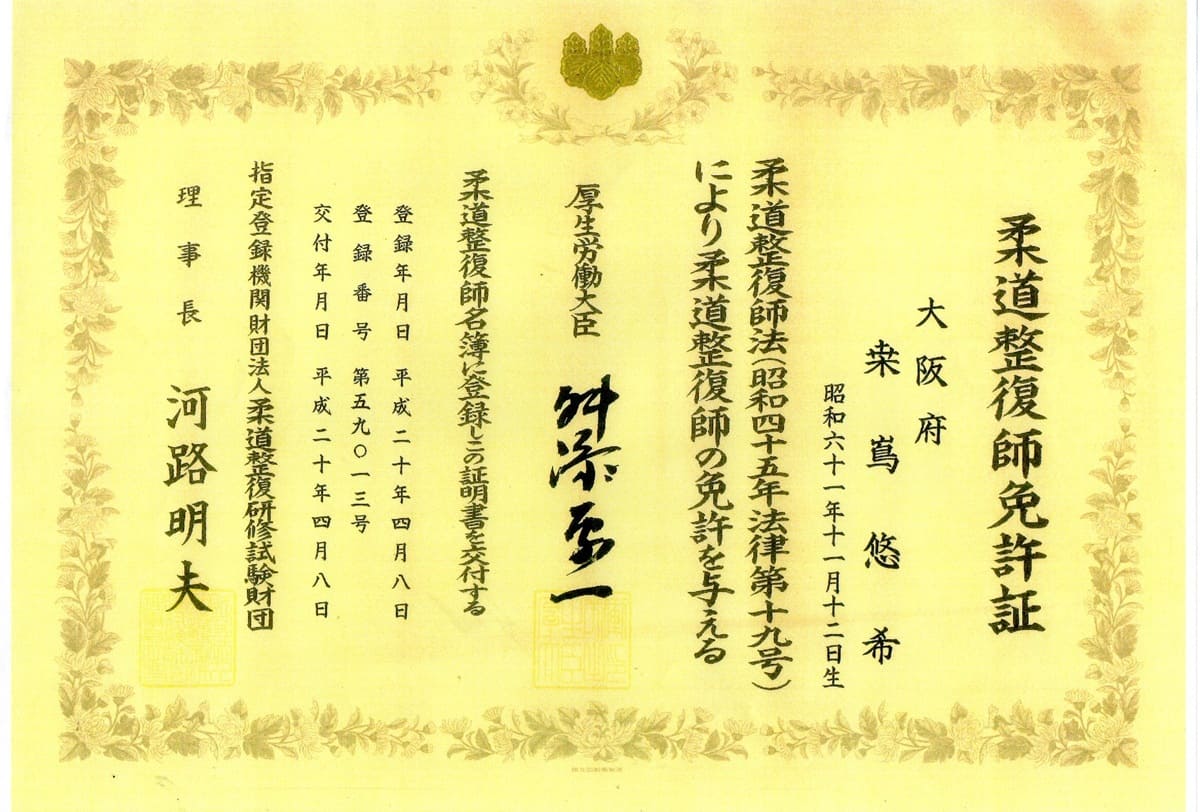 柔道整復師免許証
大阪府
桒嶌悠希
昭和六十一年十一月十二日生
柔道整復師法(昭和四十五年法律第十九号)
により柔道整復師の免許を与える
厚生労働大臣 舛添要一
柔道整復師名簿に登録しこの証明書を交付する
登録年月日 平成二十年四月八日
登録番号 第五九〇一三号
交付年月日 平成二十年四月八日
指定登録機関財団法人柔道整復研修試験財団
理事長 河路明夫